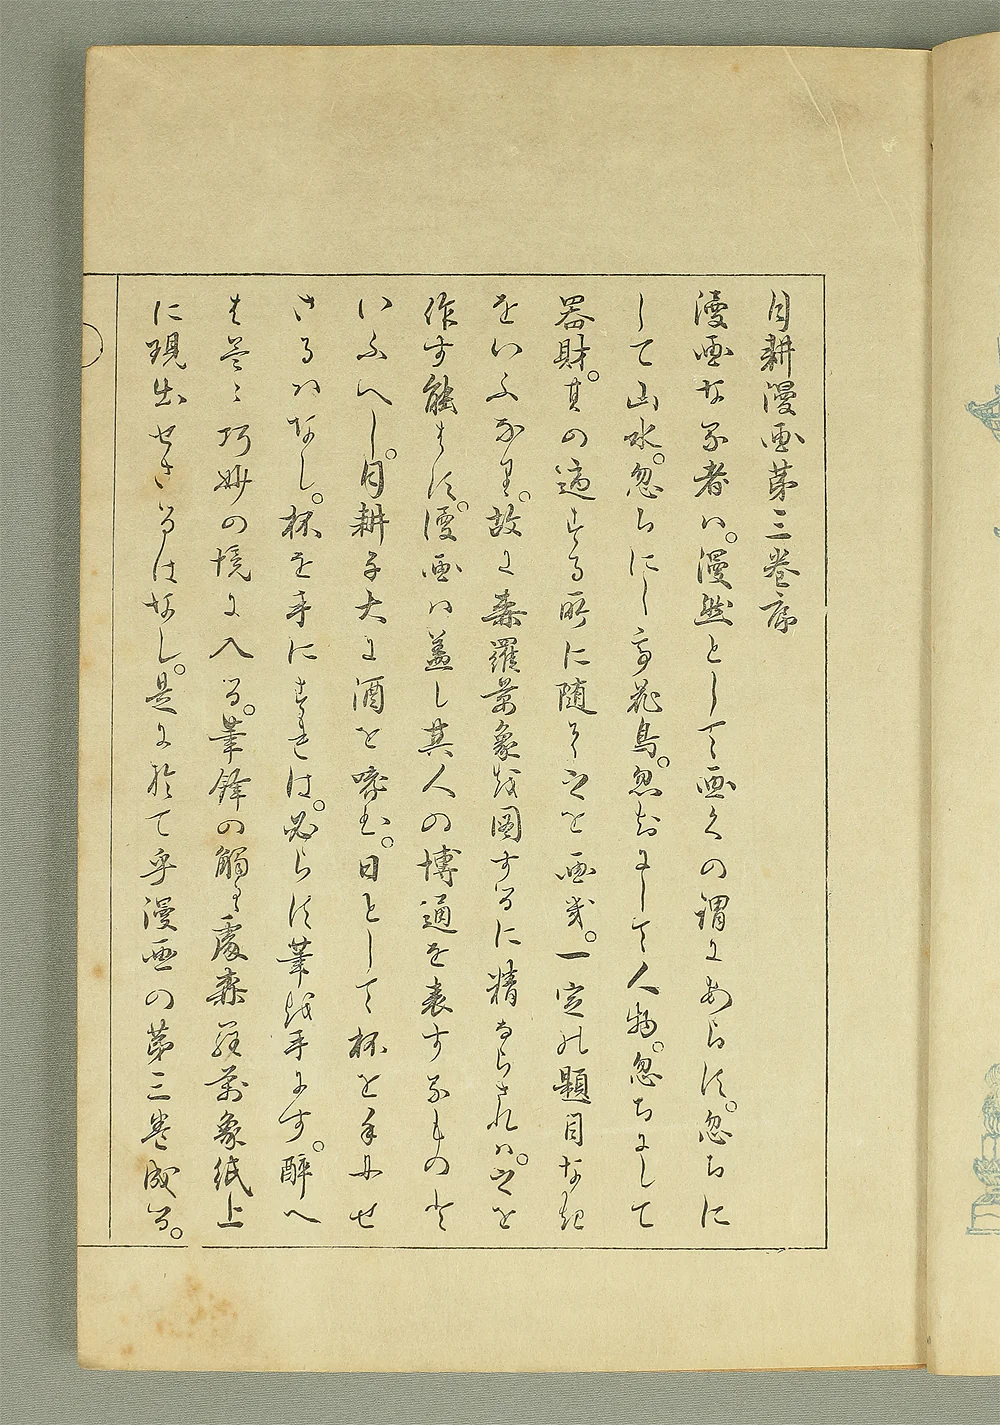 月耕漫画第三卷序
漫画なる者ハ。漫然として画くの謂にあらす。忽ちに
して山水。忽ちにして花鳥。忽ちにして人物。忽ちにして
器財。其の適する所に随ひ之を画く。一定の題目なき
をいふなり。故に森羅萬象を図するに精ならされハ。之を
作す能はす。漫画ハ蓋し其人の博通を表するものと
いふへし。月耕子大に酒を嗜む。日として杯を手にせ
さるハなし。杯を手にすれは。必らす筆を手にす。醉へ
は益々巧妙の境に入る。筆鋒の觸る處森羅萬象紙上
に現出せさるはなし。是に於て乎漫画の第三卷成る。